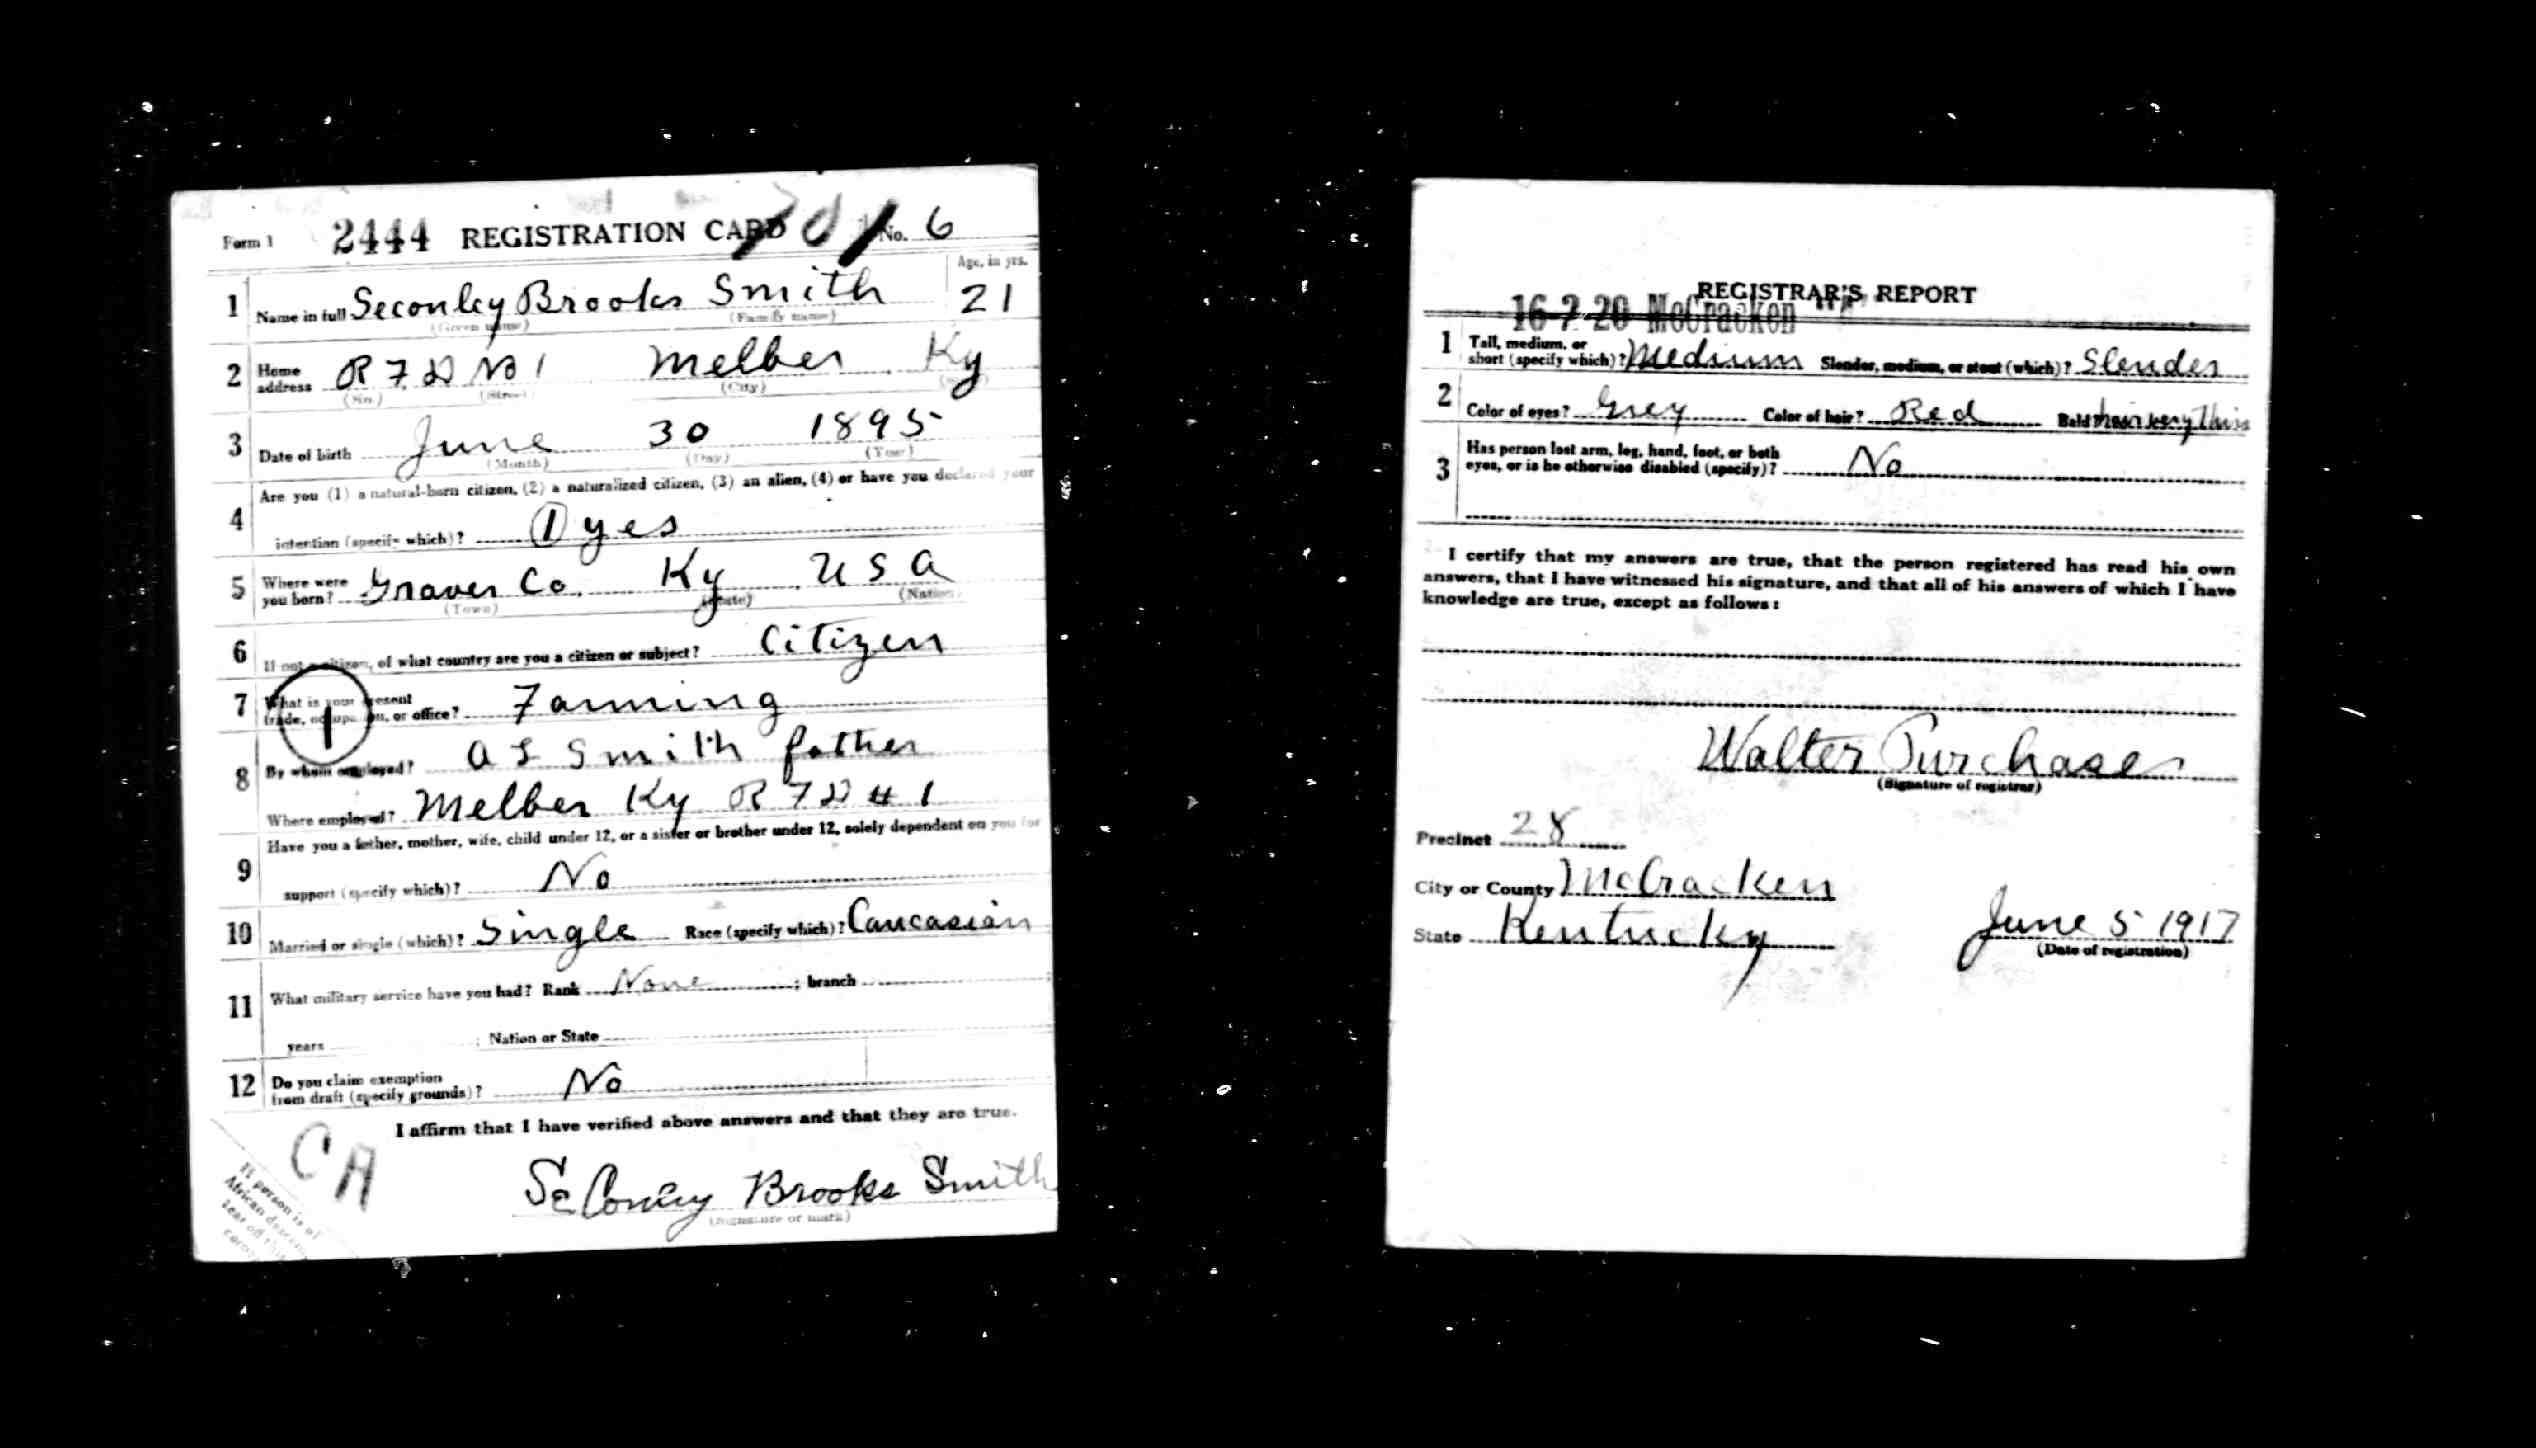 Form 1 2444 REGISTRATION CARD No. 6
Age, in yrs.
1 Name in full Seconley Brooks Smith 21
(Given name) (Family name)
2 Home address R F D No 1 Melber Ky
(No.) (Street) (City)
3 Date of birth June 30 1895
(Month) (Day) (Year)
Are you (1) a natural-born citizen, (2) a naturalized citizen, (3) an alien, (4) or have you declared your
4 intention (specify which)? 1 yes
5 Where were you born? Graves Co. Ky USA
(Town) (State) (Nation)
6 If not a citizen, of what country are you a citizen or subject? Citizen
7 What is your present trade, occupation, or office? Farming
1
8 By whom employed? A L Smith father
Where employed? Melber Ky R F D # 1
Have you a father, mother, wife, child under 12, or a sister or brother under 12, solely dependent on you for
9 support (specify which)? No
10 Married or single (which)? Single Race (specify which)? Caucasian
11 What military service have you had? Rank None ; branch
years ; Nation or State
12 Do you claim exemption from draft (specify grounds)? No
I affirm that I have verified above answers and that they are true.
CA
If person is of
African descent,
tear off this
corner
Brooks Smith
(Signature or mark)
REGISTRAR'S REPORT
16-7-20 McCracken
1 Tall, medium, or short (specify which)? Medium Slender, medium, or stout (which)? Slender
2 Color of eyes? Grey Color of hair? Red Bald hair very thin
Has person lost arm, leg, hand, foot, or both
3 eyes, or is he otherwise disabled (specify)? No
I certify that my answers are true, that the person registered has read his own
answers, that I have witnessed his signature, and that all of his answers of which I have
knowledge are true, except as follows:
Walter Purchases
(Signature of registrar)
Precinct 28
City or County McCracken
State Kentucky June 5 1917
(Date of registration)